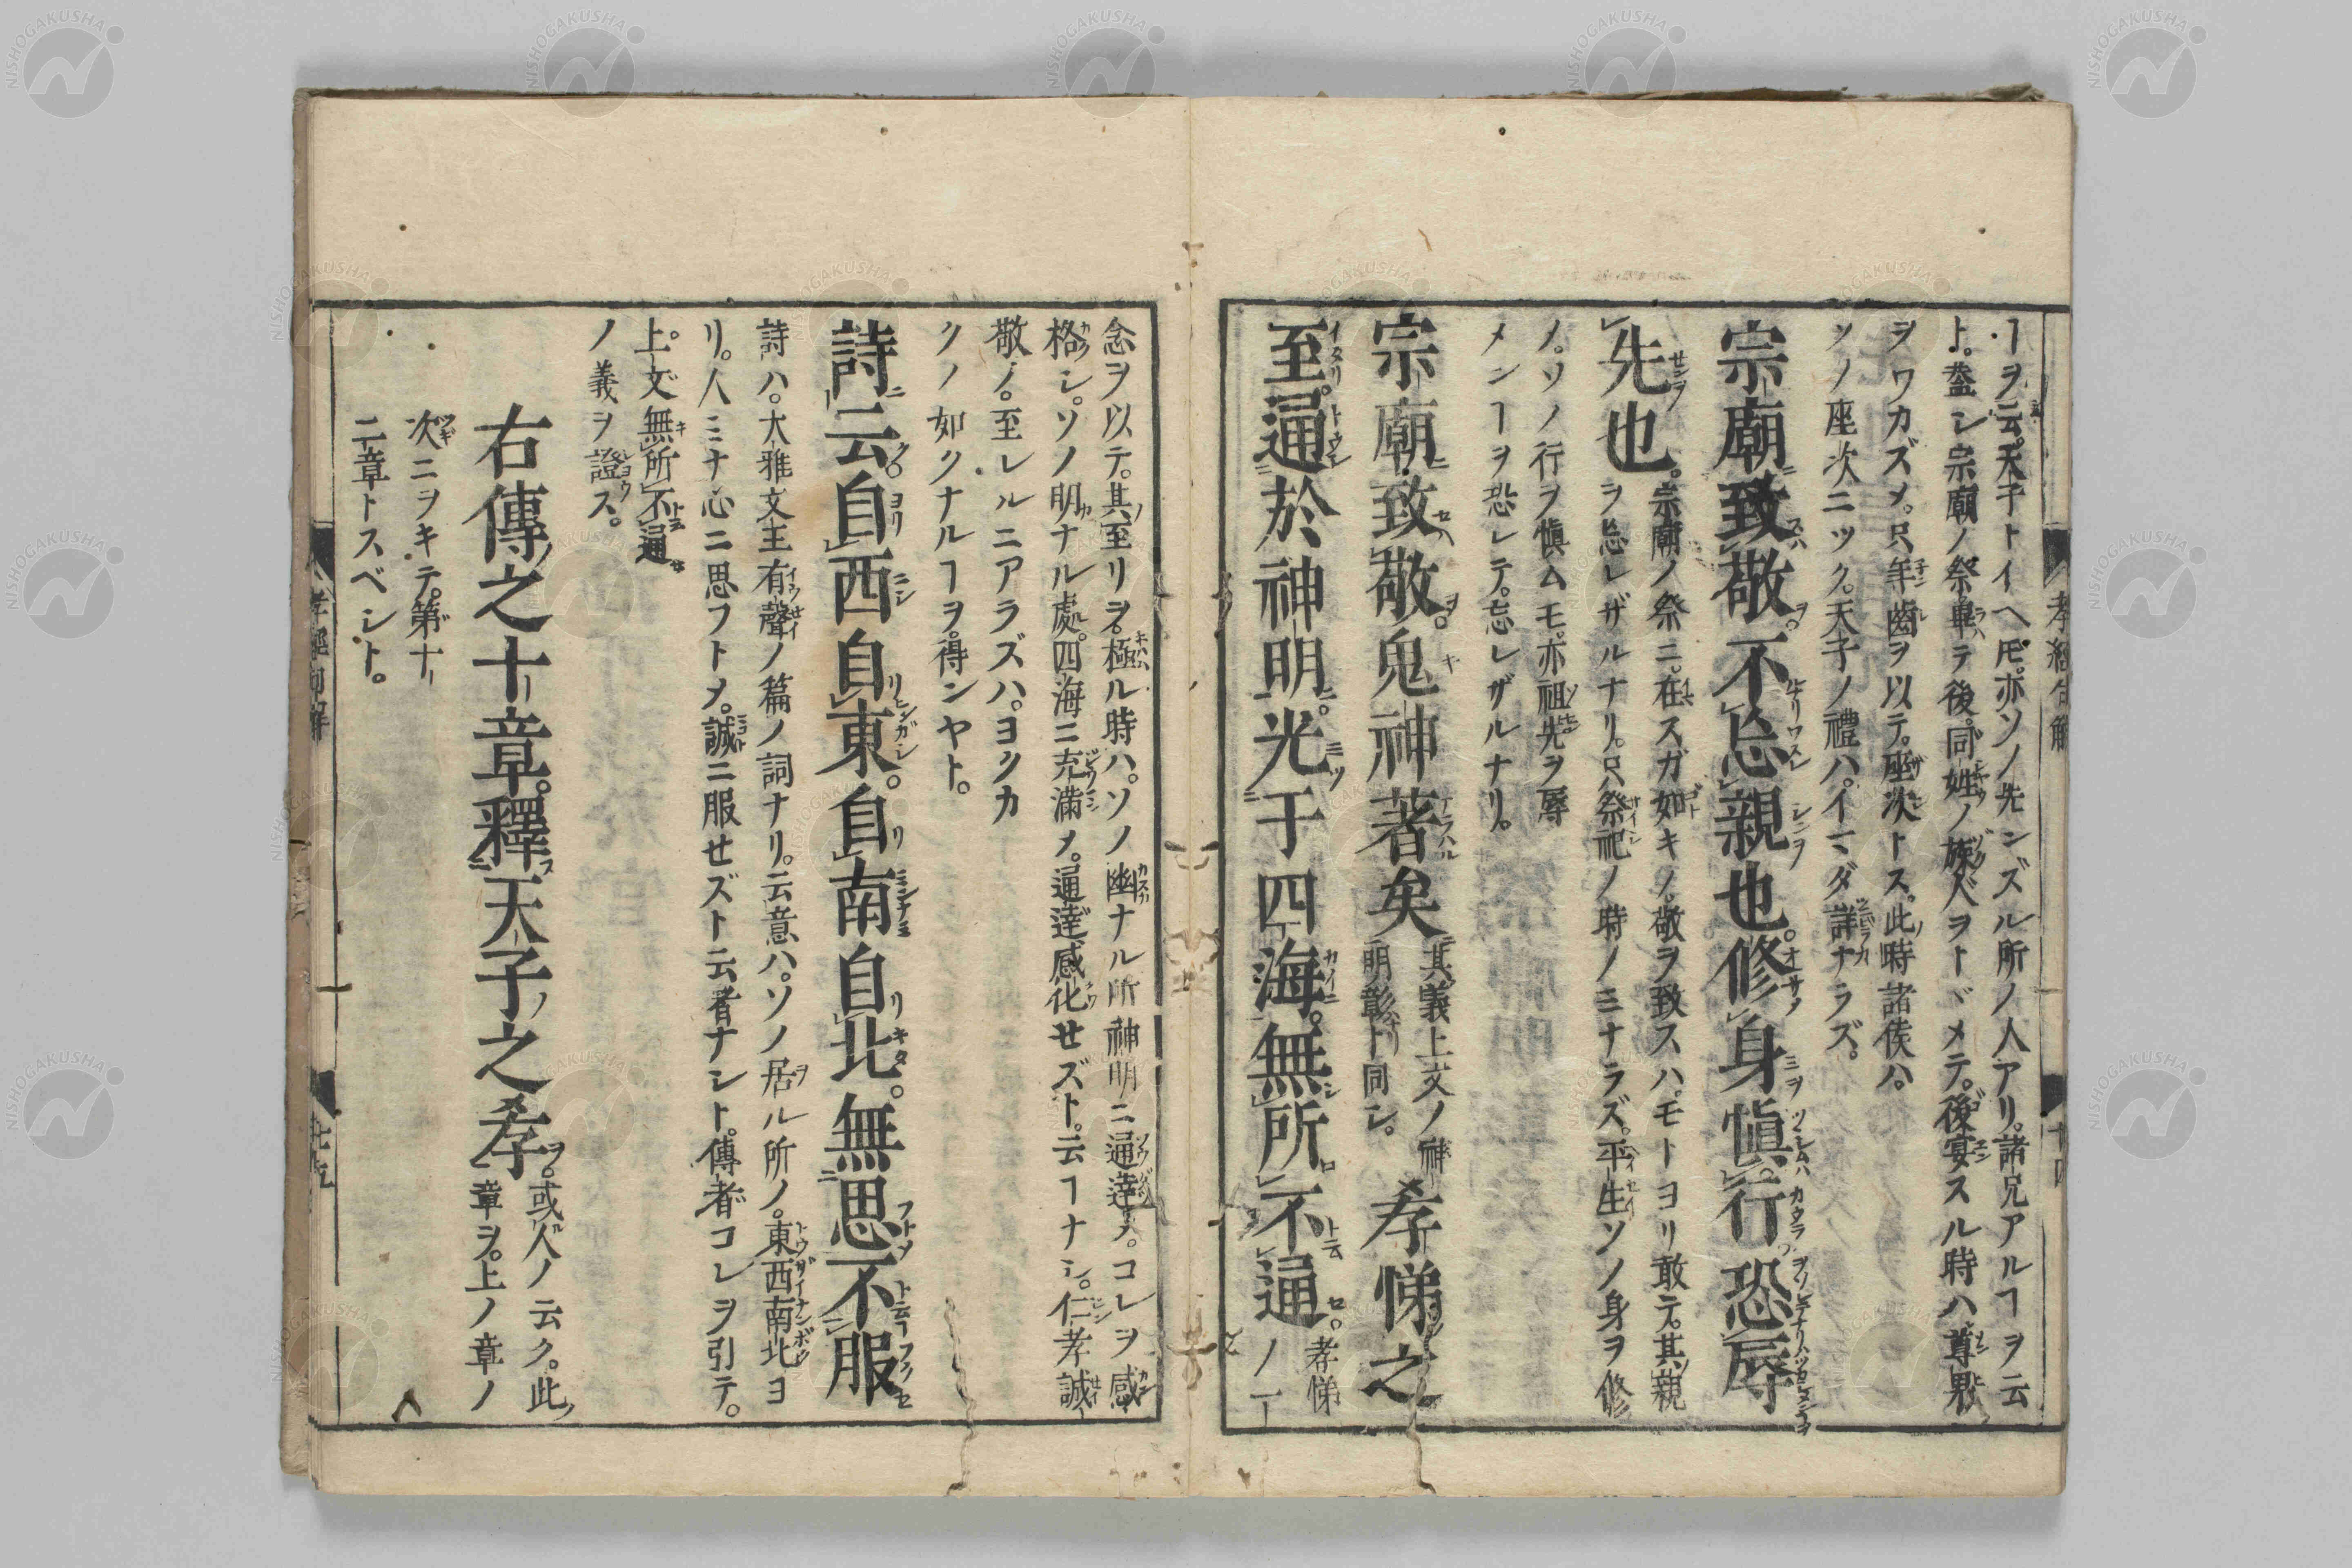 ヿヲ云。天子トイヘ𪜈。亦ソノ先ンズル所ノ人アリ。諸兄アルヿヲ云
ト。蓋シ宗廟ノ祭畢テ後。同姓ノ族人ヲトヾメテ。後宴スル時ハ。尊卑
ヲワカズメ。只年齒ヲ以テ。座次トス。此時諸侯ハ。
ソノ座次ニツク。天子ノ禮ハ。イマダ詳ナラズ。
宗廟致敬。不忘親也。修身愼行恐辱
先也。
宗廟ノ祭ニ。在スガ如キノ。敬ヲ致スハ。モトヨリ敢テ。其親
ヲ忘レザルナリ。只祭祀ノ時ノミナラズ。平生ソノ身ヲ修
ノ。ソノ行ヲ愼ムモ。亦祖先ヲ辱
メンヿヲ恐レテ。忘レザルナリ。
宗廟致敬。鬼神著矣
其義上文ノ神
明彰ト同シ。
孝悌之
至。通於神明。光于四海。無所不通。
孝悌
ノ一
念ヲ以テ。其至リヲ極ル時ハ。ソノ幽ナル所神明ニ通達ス。コレヲ感
格シ。ソノ明ナル處。四海ニ充滿メ。通達感化セズト。云ヿナシ。仁孝誠
敬ノ。至レルニアラズハ。ヨクカ
クノ如クナルヿヲ。得ンヤト。
詩云。自西自東。自南自北。無思不服
詩ハ。大雅文王有聲ノ篇ノ詞ナリ。云意ハ。ソノ居ル所ノ。東西南北ヨ
リ。人ミナ心ニ思フトメ。誠ニ服セズト云者ナシト。傳者コレヲ引テ。
上文無所不通
ノ義ヲ證ス。
右傳之十章。釋天子之孝
或人ノ云ク。此
章ヲ。上ノ章ノ
次ニヲキテ。第十
二章トスベシト。